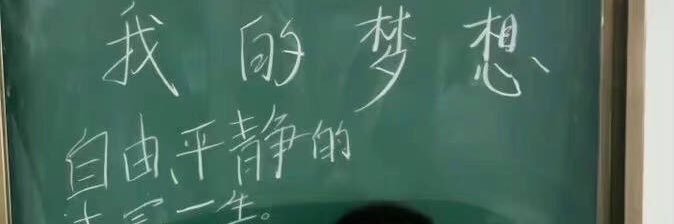 我的梦想
自由、平静的
一生。